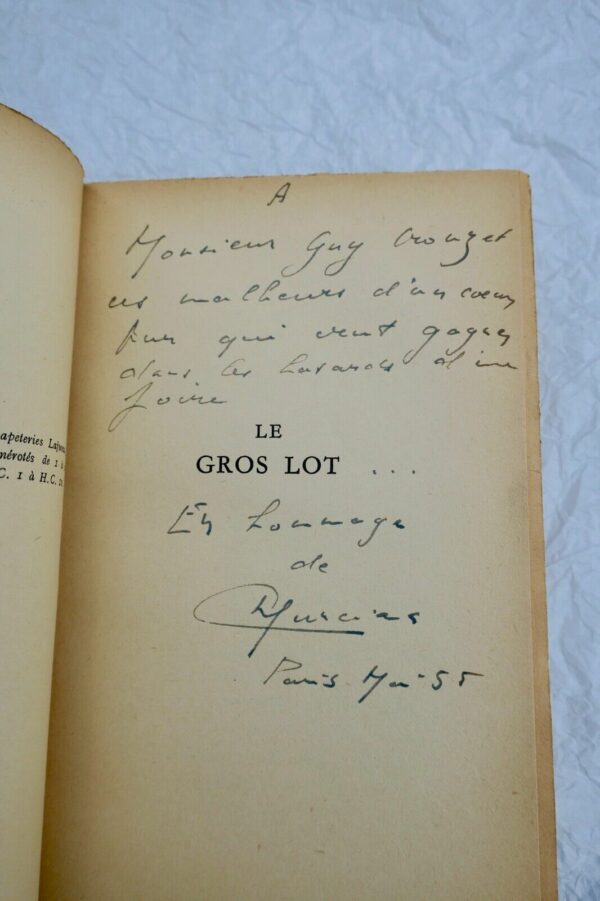 A
Monsieur Guy Crouzet
ces malheurs d'un coeur
pur qui veut gagner
dans les hasards d'une
foire
LE
GROS LOT ...
En hommage
de
Murcias
Paris Mai 55
apeteries Lafuma
mérotés de 1 à
C. 1 à H.C.